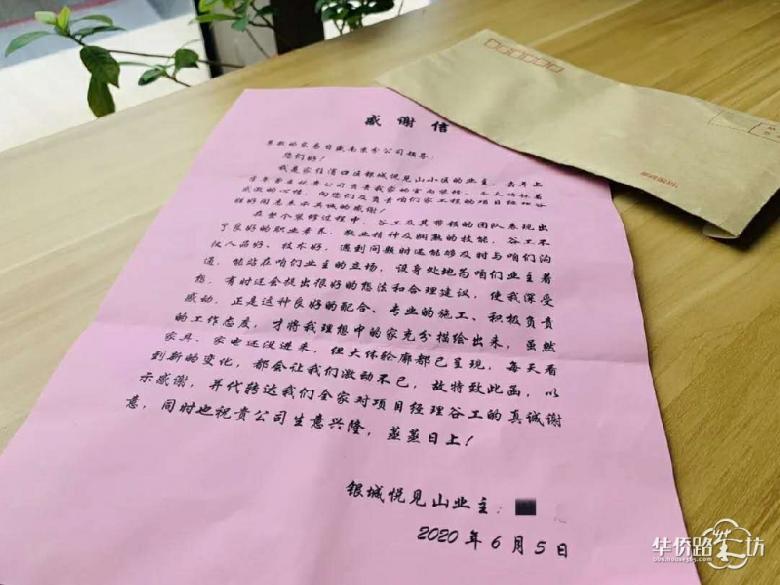 感 谢 信
尊敬的家易日盛南京分公司领导:
您们好!
我是家住浦口区银城悦见山小区的业主,去年上
感激的心情,向您们及负责咱们家工程的项目经理谷
程好同志表示真诚的感谢!
在整个装修过程中,谷工及其带领的团队表现出
了良好的职业素养、敬业精神及娴熟的技能,谷工不
仅人品好、技术好,遇到问题时还能够及时与咱们沟
通,能站在咱们业主的立场,设身处地为咱们业主着
想,有时还会提出很好的想法和合理建议,使我深受
感动,正是这种良好的配合、专业的施工、积极负责
的工作态度,才将我理想中的家充分描绘出来,虽然
家具、家电还没进来,但大体轮廓都已呈现,每天看
到新的变化,都会让我们激动不已,故特致此函,以
示感谢,并代转达我们全家对项目经理谷工的真诚谢
意,同时也祝贵公司生意兴隆,蒸蒸日上!
银城悦见山业主:
2020 年 6 月 5 日
华侨路茶坊
bbs.house365.com